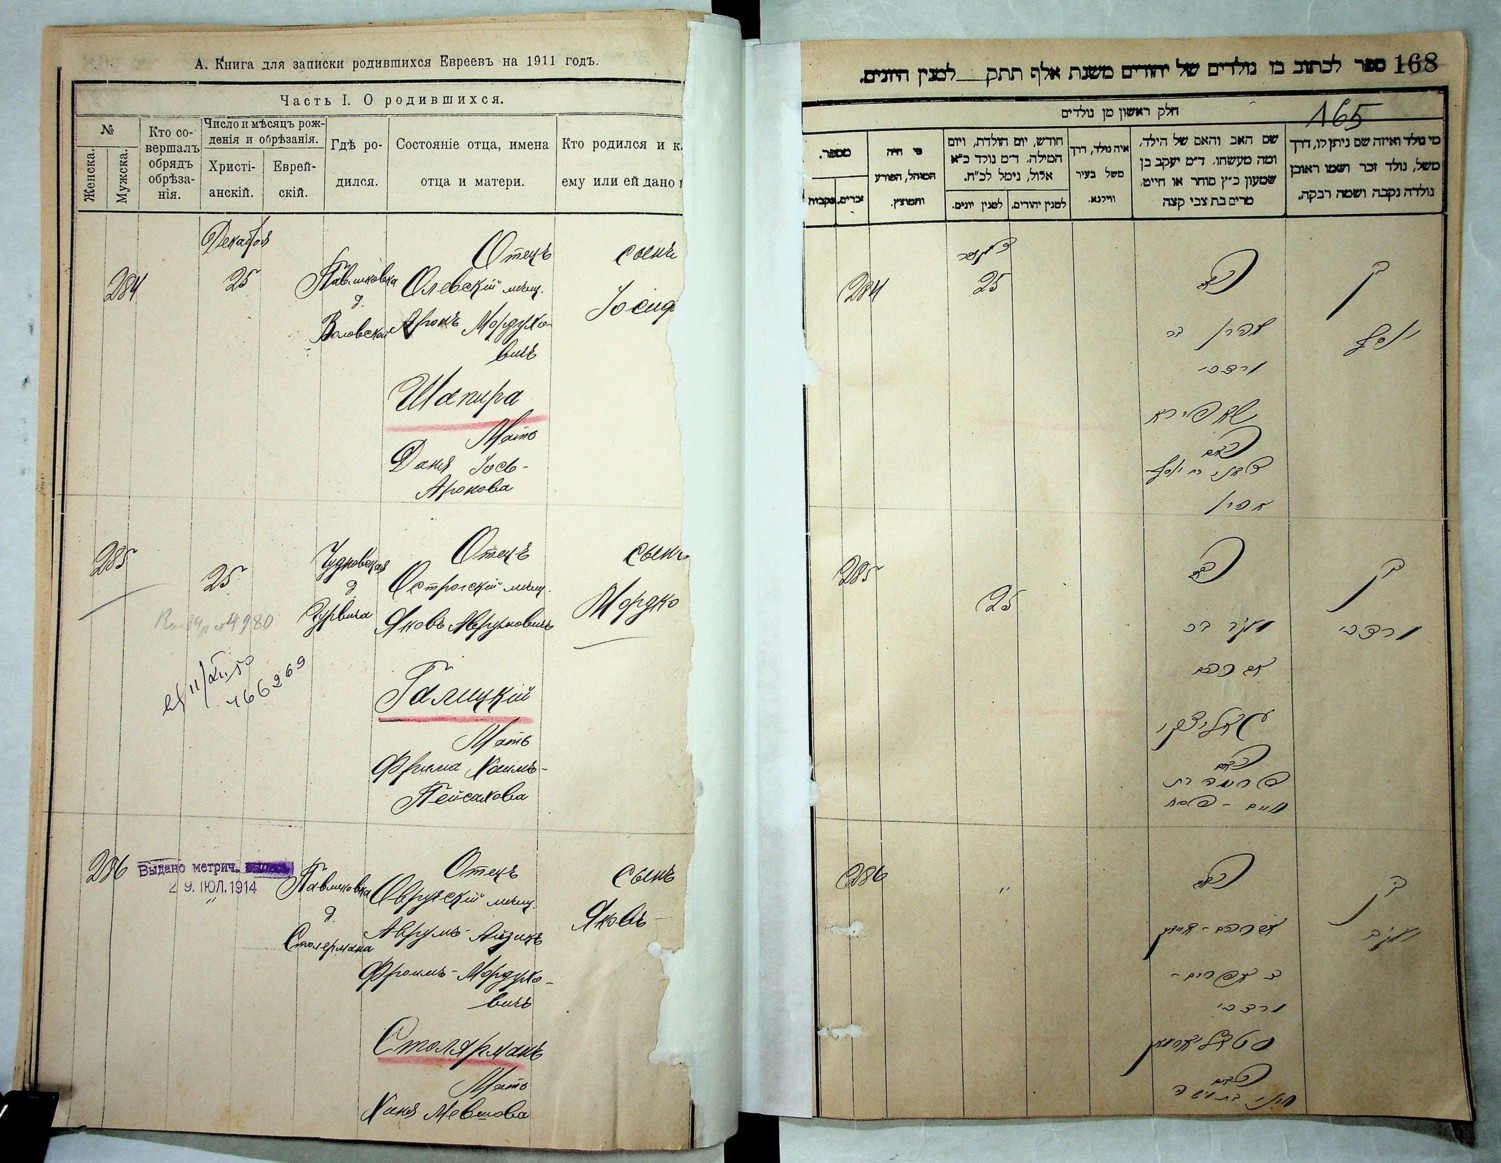 А. Книга для записки родившихся Евреевъ на 1911 годъ.
Часть I. О родившихся.
№
Женска.
Мужска.
Кто со-
вершалъ
обрядъ
обрѣза-
нія.
Число и мѣсяцъ рож-
денія и обрѣзанія.
Христі-
анскій.
Еврей-
скій.
Гдѣ ро-
дился.
Состояніе отца, имена
отца и матери.
Кто родился и к
ему или ей дано
Декабря
284
25
Павшковка
д.
Отецъ
Олевскій мѣщ.
Аронъ Мордухо-
вичъ
Шапира
Мать
Іось-
Аронова
сынъ
Іосиф
285
25
Чудновская
д
Гурвича
Отецъ
Острогскій мѣщ.
Яковъ Аврумовичъ
Галицкій
Мать
Фрима Хаимъ-
Пейсахова
сынъ
Мордко
166269
286
Выдано метрич.
29. ІЮЛ. 1914
"
д.
Столермана
Отецъ
Овручскій мѣщ.
Аврумъ-Айзикъ
Фроимъ-Мордухо-
вичъ
Столярманъ
Мать
Ханя Мевшова
сынъ
Яковъ
168
ספר לכתוב בו נולדים של יהודים משנת אלף תתק__למנין היונים.
165
חלק ראשון מן נולדים
מי נולד ואיזה שם ניתן לו, דרך
משל, נולד זכר ושמו ראובן
נולדה נקבה ושמה רבקה.
שם האב והאם של הילד,
ומה מעשהו. ד״מ יעקב בן
שמעון כ״ץ סוחר או חייט,
מרים בת צבי קצה
איה נולד, דרך
משל בעיר
ווילנא.
חודש, יום הולדת, ויום
המילה. ד״מ נולד כ״א
אלול, נימל לכ״ח.
למנין יהודים.
למנין יונים.
מי היה
המוהל, הפורע
והמוצץ.
מספר.
זכרים.
נקבות
284
25
בן
יוסף
אהרן בר
מרדכי
שאפירא
285
25
בן
מרדכי
יעקב בר
אברהם
286
"
בן
יעקב
אברהם-אייזיק
מרדכי